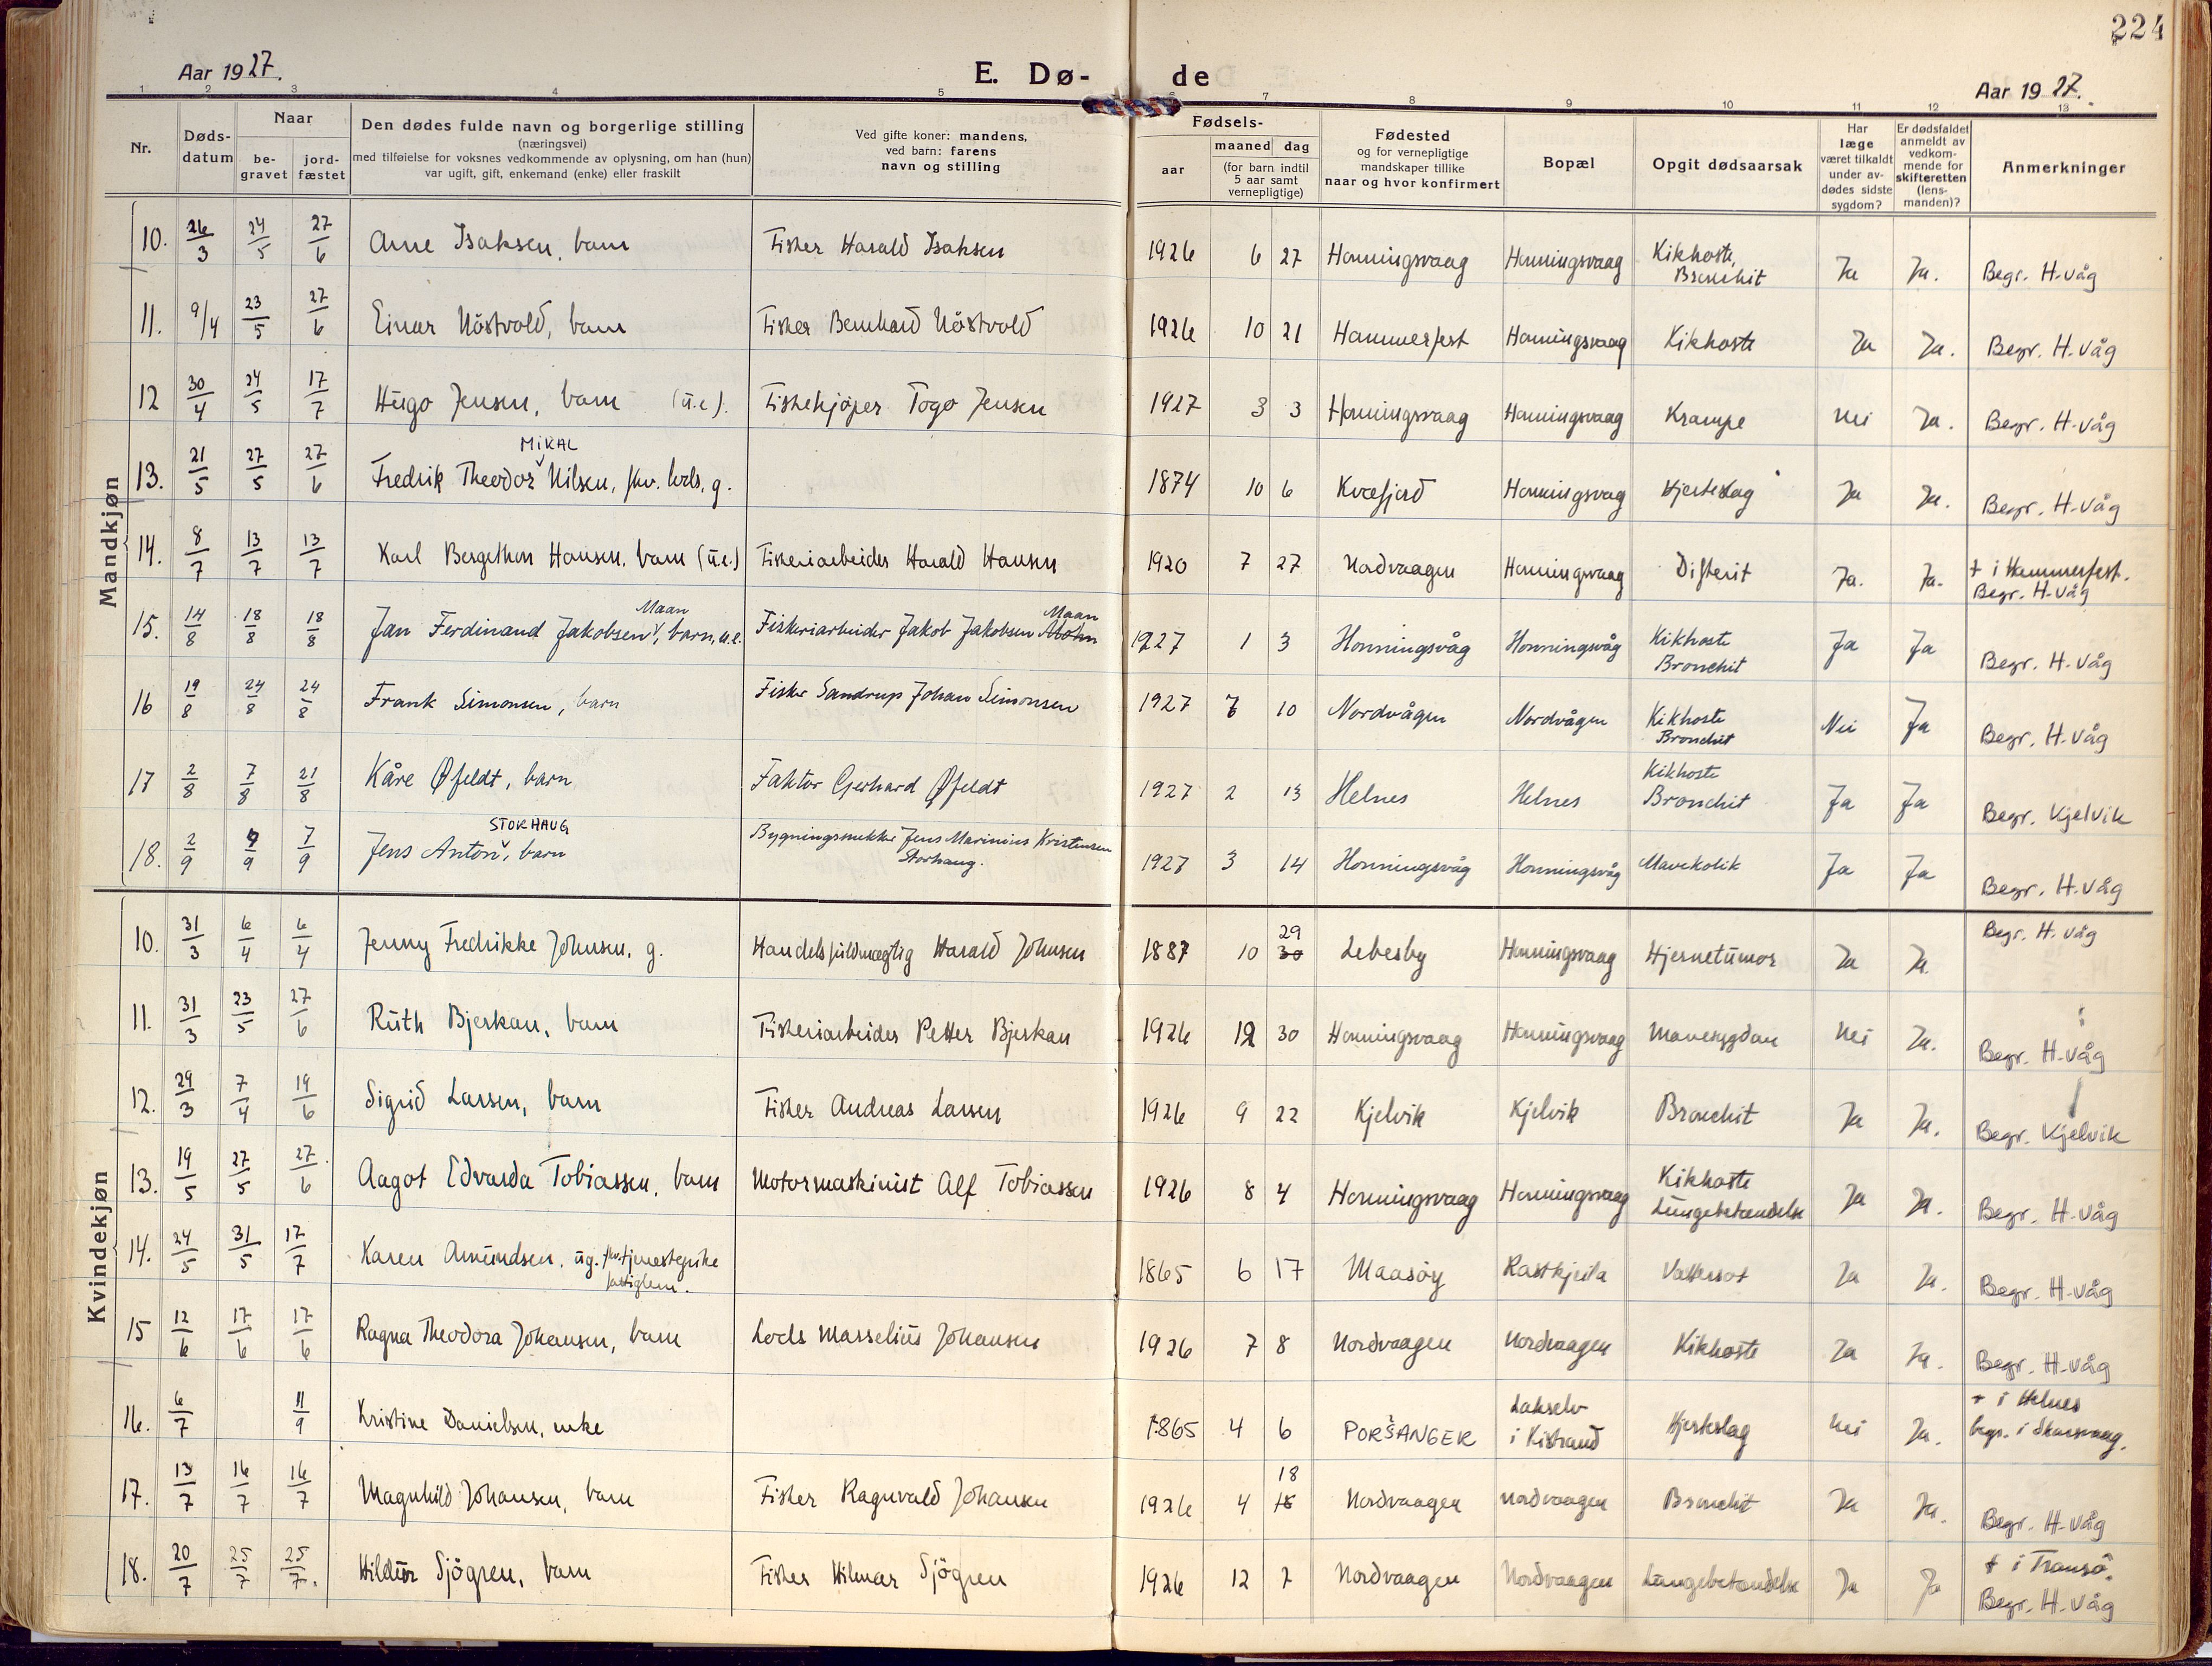 224
Aar 1927.
E. Dø- de
Aar 1927.
1 2 3 4 5 6 7 8 9 10 11 12 13
Nr.
Døds-
datum
Naar
be-
gravet
jord-
fæstet
Den dødes fulde navn og borgerlige stilling
(næringsvei)
med tilføielse for voksnes vedkommende av oplysning, om han (hun)
var ugift, gift, enkemand (enke) eller fraskilt
Ved gifte koner: mandens,
ved barn: farens
navn og stilling
Fødsels-
aar
maaned dag
(for barn indtil
5 aar samt
vernepligtige)
Fødested
og for vernepligtige
mandskaper tillike
naar og hvor konfirmert
Bopæl
Opgit dødsaarsak
Har
læge
været tilkaldt
under av-
dødes sidste
sygdom?
Er dødsfaldet
anmeldt av
vedkom-
mende for
skifteretten
(lens-
manden)?
Anmerkninger
Mandkjøn
10. 26/3 24/5 27/6 Arne Isaksen, barn Fisker Harald Isaksen 1926 6 27 Honningsvaag Honningsvaag Kikhoste, Bronchit Ja Ja. Begr. H-våg
11. 9/4 23/5 27/6 Einar Nöstvold, barn Fisker Bernhard Nöstvold 1926 10 21 Hammerfest Honningsvaag Kikhoste Ja Ja. Begr. H-våg
12 30/4 24/5 17/7 Hugo Jensen, barn (u.e). Fiskekjøper Togo Jensen 1927 3 3 Honningsvaag Honningsvaag Krampe Nei Ja. Begr. H-våg
MIKAL
13. 21/5 27/5 27/6 Fredrik Theodor Nilsen, fhv. lods, g. 1874 10 6 Kvæfjord Honningsvaag Hjerteslag Ja Ja. Begr. H-våg
14. 8/7 13/7 13/7 Karl Bergethon Hansen, barn (u.e.) Fiskeriarbeider Harald Hansen 1920 7 27 Nordvaagen Honningsvaag Difterit Ja. Ja. † i Hammerfest. Begr. H-våg
Maan Maan
15. 14/8 18/8 18/8 Jan Ferdinand Jakobsen, barn, u.e. Fiskeriarbeider Jakob Jakobsen 1927 1 3 Honningsvåg Honningsvåg Kikhoste Bronchit Ja Ja Begr. H-våg
16 19/8 24/8 24/8 Frank Simonsen, barn Fisker Sandrup Johan Simonsen 1927 7 10 Nordvågen Nordvågen Kikhoste Bronchit Nei Ja Begr. H-våg
17 2/8 7/8 21/8 Kåre Øfeldt, barn Faktor Gerhard Øfeldt 1927 2 13 Helnes Helnes Kikhoste Bronchit Ja Ja Begr. Kjelvik
STORHAUG
18. 2/9 7/9 7/9 Jens Anton, barn Bygningssnekker Jens Marinius Kristensen Storhaug. 1927 3 14 Honningsvåg Honningsvåg Mavekolik Ja Ja Begr. H-våg
Kvindekjøn
10. 31/3 6/4 6/4 Jenny Fredrikke Johnsen, g. Handelsfuldmægtig Harald Johnsen 1887 10 29 30 Lebesby Honningsvaag Hjernetumor Ja Ja. Begr. H. våg
11. 31/3 23/5 27/6 Ruth Bjerkan, barn Fiskeriarbeider Petter Bjerkan 1926 12 30 Honningsvaag Honningsvaag Mavesygdom Nei Ja. Begr. H-våg
12. 29/3 7/4 19/6 Sigrid Larsen, barn Fisker Andreas Larsen 1926 9 22 Kjelvik Kjelvik Bronchit Ja Ja. Begr. Kjelvik
13. 19/5 27/5 27/6 Aagot Edvarda Tobiassen, barn Motormaskinist Alf Tobiassen 1926 8 4 Honningsvaag Honningsvaag Kikhoste Lungebetændelse Ja Ja. Begr. H-våg
14. 24/5 31/5 17/7 Karen Amundsen, ug. fhv. tjenestepike fattiglem. 1865 6 17 Maasøy Vattersot Ja Ja. Begr. H-våg
15 12/6 17/6 17/6 Ragna Theodora Johansen, barn Lods Masselius Johansen 1926 7 8 Nordvaagen Nordvaagen Kikhoste Ja Ja. Begr. H-våg
16. 6/7 11/9 Kristine Danielsen, enke 1865 4 6 PORSANGER Lakselv i Kistrand Hjerteslag Nei Ja. † i Helnes begr. i Skarsvaag.
17. 13/7 16/7 16/7 Magnhild Johansen, barn Fisker Ragnvald Johansen 1926 4 18 Nordvaagen Nordvaagen Bronchit Ja Ja. Begr. H-våg
18. 20/7 25/7 25/7. Hildur Sjögren, barn Fisker Hilmar Sjögren 1926 12 7 Nordvaagen Nordvaagen Lungebetændelse Ja Ja † i Tromsö. Begr. H-våg